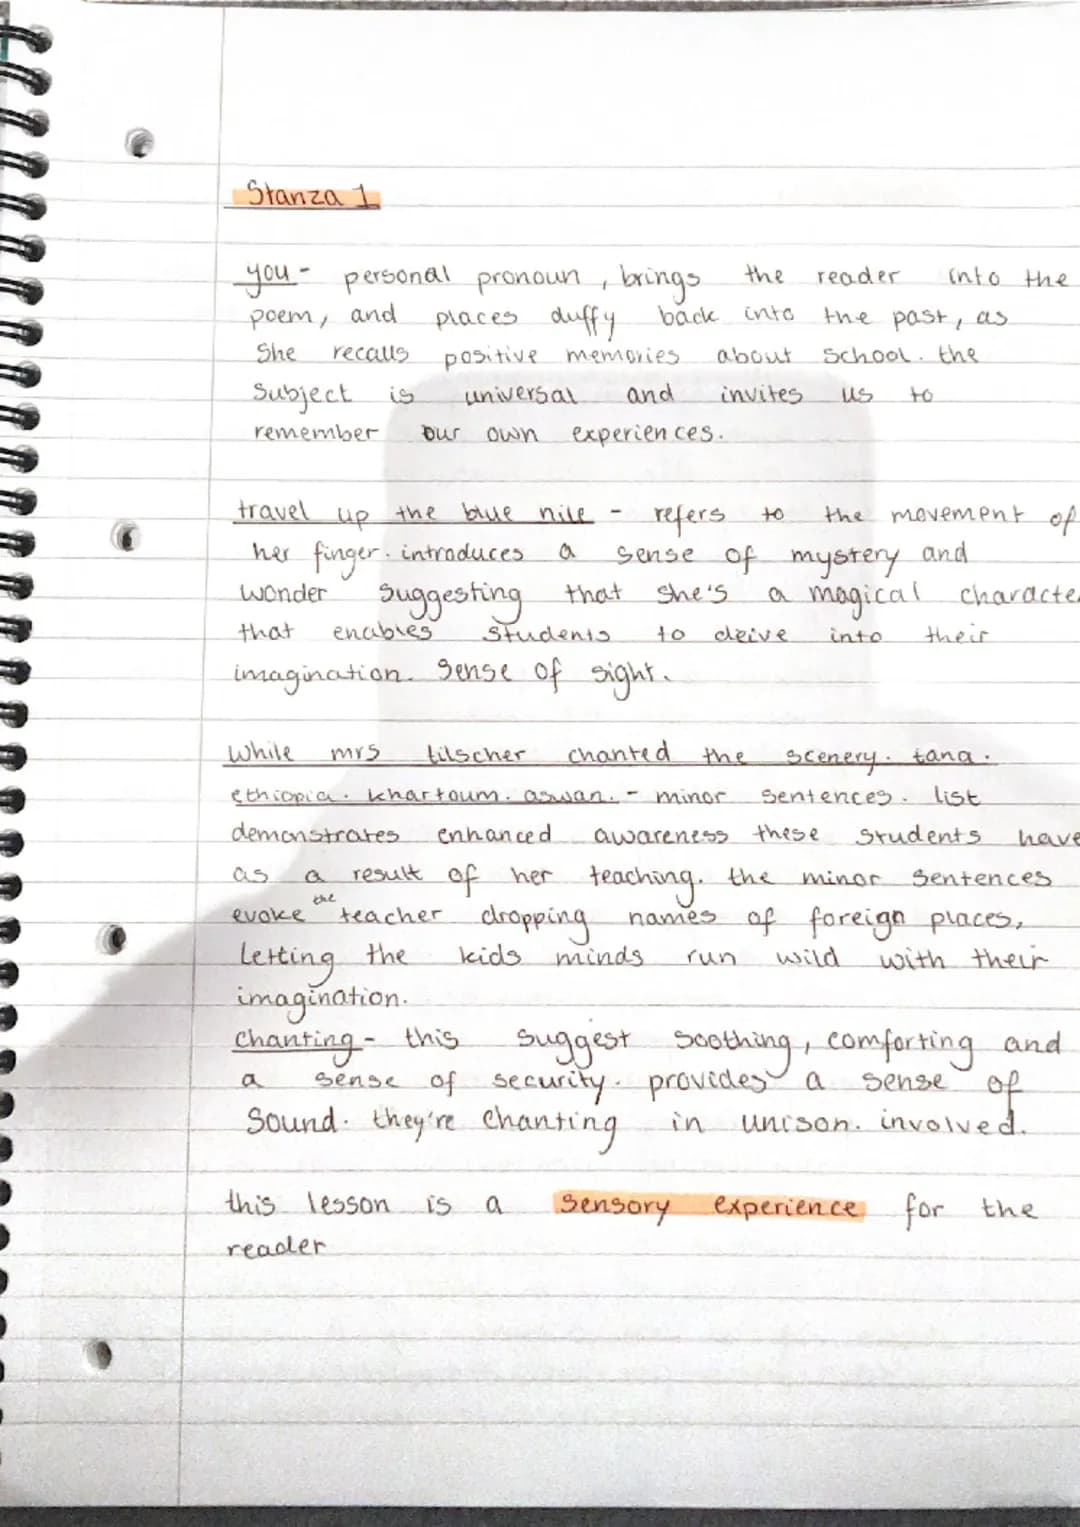 Stanza 1
you - personal pronoun, brings the reader into the
poem, and places duffy back into the past, as
She recalls positive memories about school. the
Subject is universal and invites us to
remember our own experiences.
travel up the blue nile - refers to the movement of
her finger. introduces a sense of mystery and
wonder suggesting that she's a magical characte
that enables students to deive into their
imagination. Sense of sight.
While mrs tilscher chanted the scenery. tana.
ethiopia. khartoum. aswan. - minor sentences. list
demonstrates enhanced awareness these students have
as a result of her teaching. the minor sentences
evoke the teacher dropping names of foreign places,
Letting the kids minds run wild with their
imagination.
Chanting - this suggest soothing, comforting and
a sense of security. provides a sense of
Sound. they're chanting in unison. involved.
this lesson is a sensory experience for the
reader